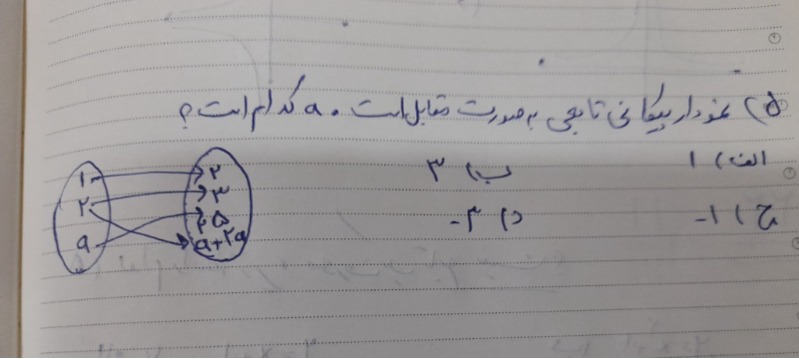 ۵) نمودار پیکانی تابعی به صورت مقابل است. a کدام است؟
الف) ۱
ب) ۳
ج) ۱-
د) ۳-
۱
۲
a
۲
۳
۵